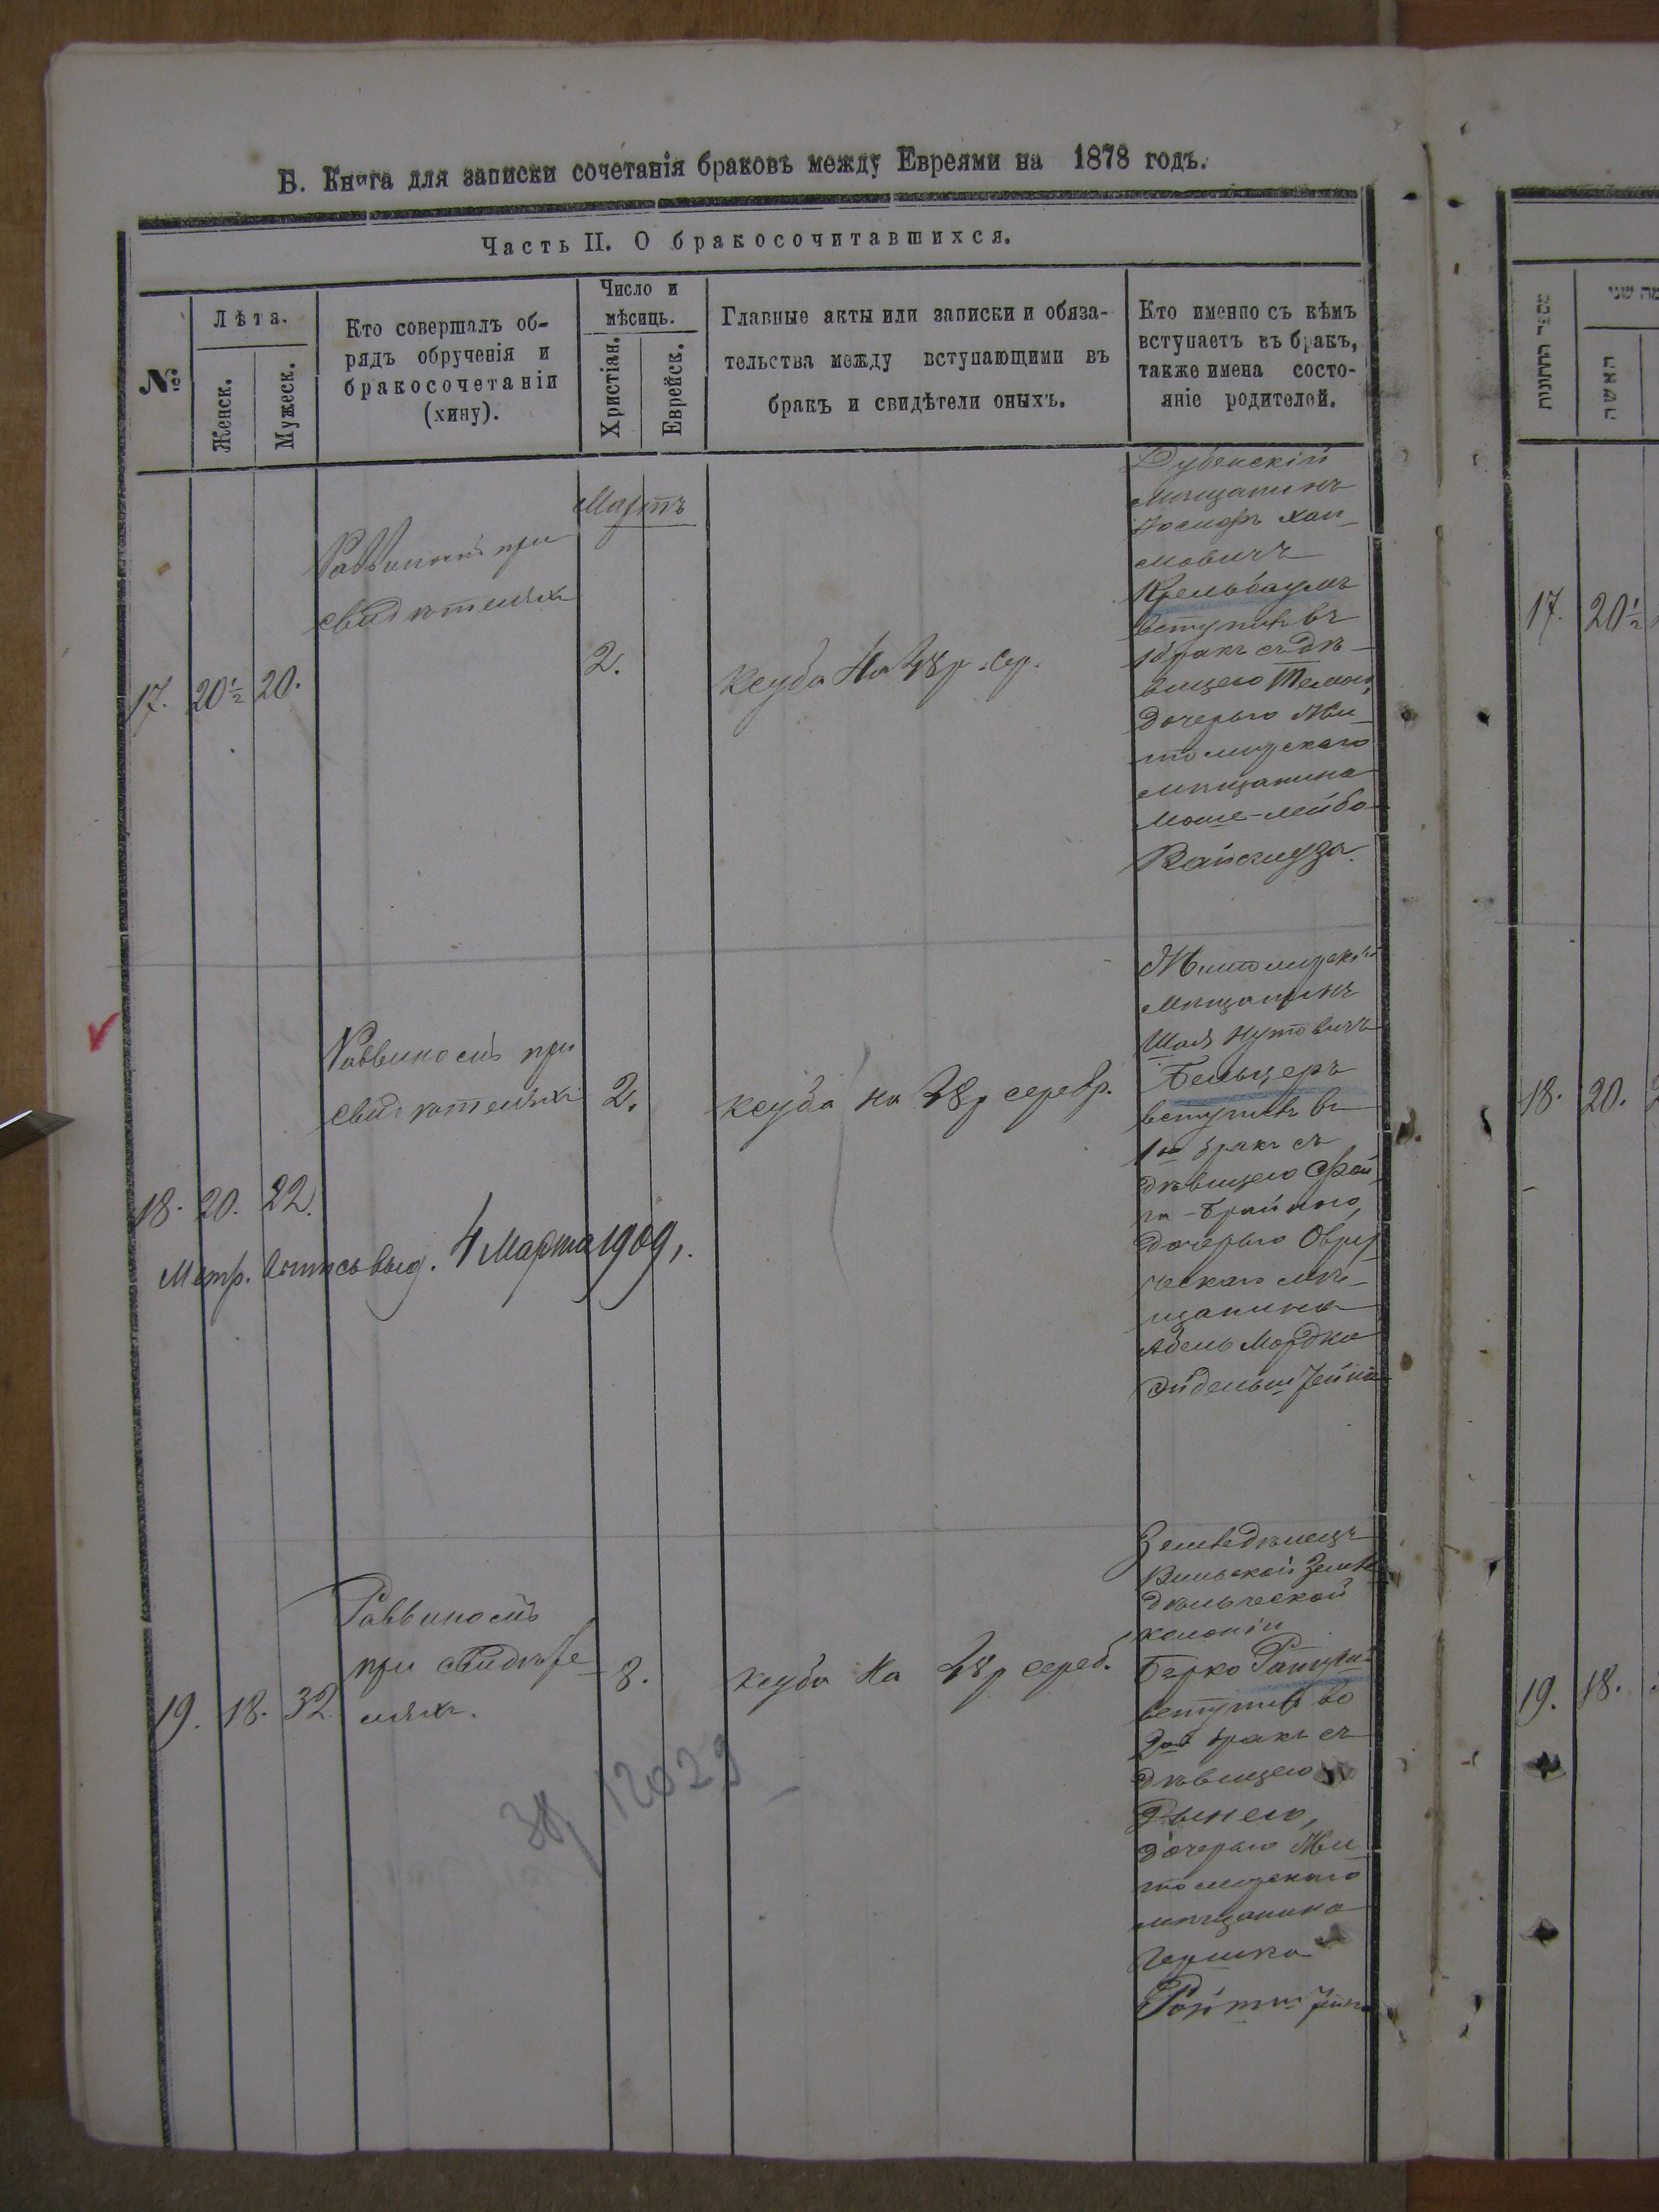 Б. Книга для записки сочетанія браковъ между Евреями на 1878 годъ.
Часть II. О бракосочитавшихся.
№
Лѣта.
Женск.
Мужеск.
Кто совершалъ об-
рядъ обрученія и
бракосочетаніи
(хину).
Число и
мѣсяцъ.
Христіан.
Еврейск.
Главные акты или записки и обяза-
тельства между вступающими въ
бракъ и свидѣтели оныхъ.
Кто именно съ кѣмъ
вступаетъ въ бракъ,
также имена состо-
яніе родителей.
מספר החתונות
האשה
Мартъ
17. 20½ 20.
Раввиномъ при
свидѣтеляхъ
2.
ксуба на 48 р. сер.
Дубенскій
мѣщанинъ
Іосифъ Хаи-
мовичъ
Крельбаумъ
вступилъ въ
1й бракъ съ дѣ-
вицею
дочерью Жи-
томирскаго
мѣщанина
Моше-Лейба
18. 20. 22.
Раввиномъ при
свидѣтеляхъ
2.
ксуба на 48 р серебр.
Житомирскій
мѣщанинъ
Шая Нутовичъ
Бельцеръ
вступилъ въ
1й бракъ съ
дѣвицею Фей-
га-Брайною,
дочерью Овру-
ческаго мѣ-
щанина
Абель Мордка
Эйдельштейна
Метр. выпись выд. 4 Марта 1909 г.
19. 18. 32
Раввиномъ
при свидѣте-
ляхъ.
8.
ксуба на 48 р сереб.
Земледѣлецъ
Вильской Земле-
дѣльческой
колоніи
Берко
вступилъ во
2ой бракъ съ
дѣвицею
дочерью Жи-
томирскаго
мѣщанина
Гершка
Ройтштейна
12023
17. 20½
18. 20.
19. 18.